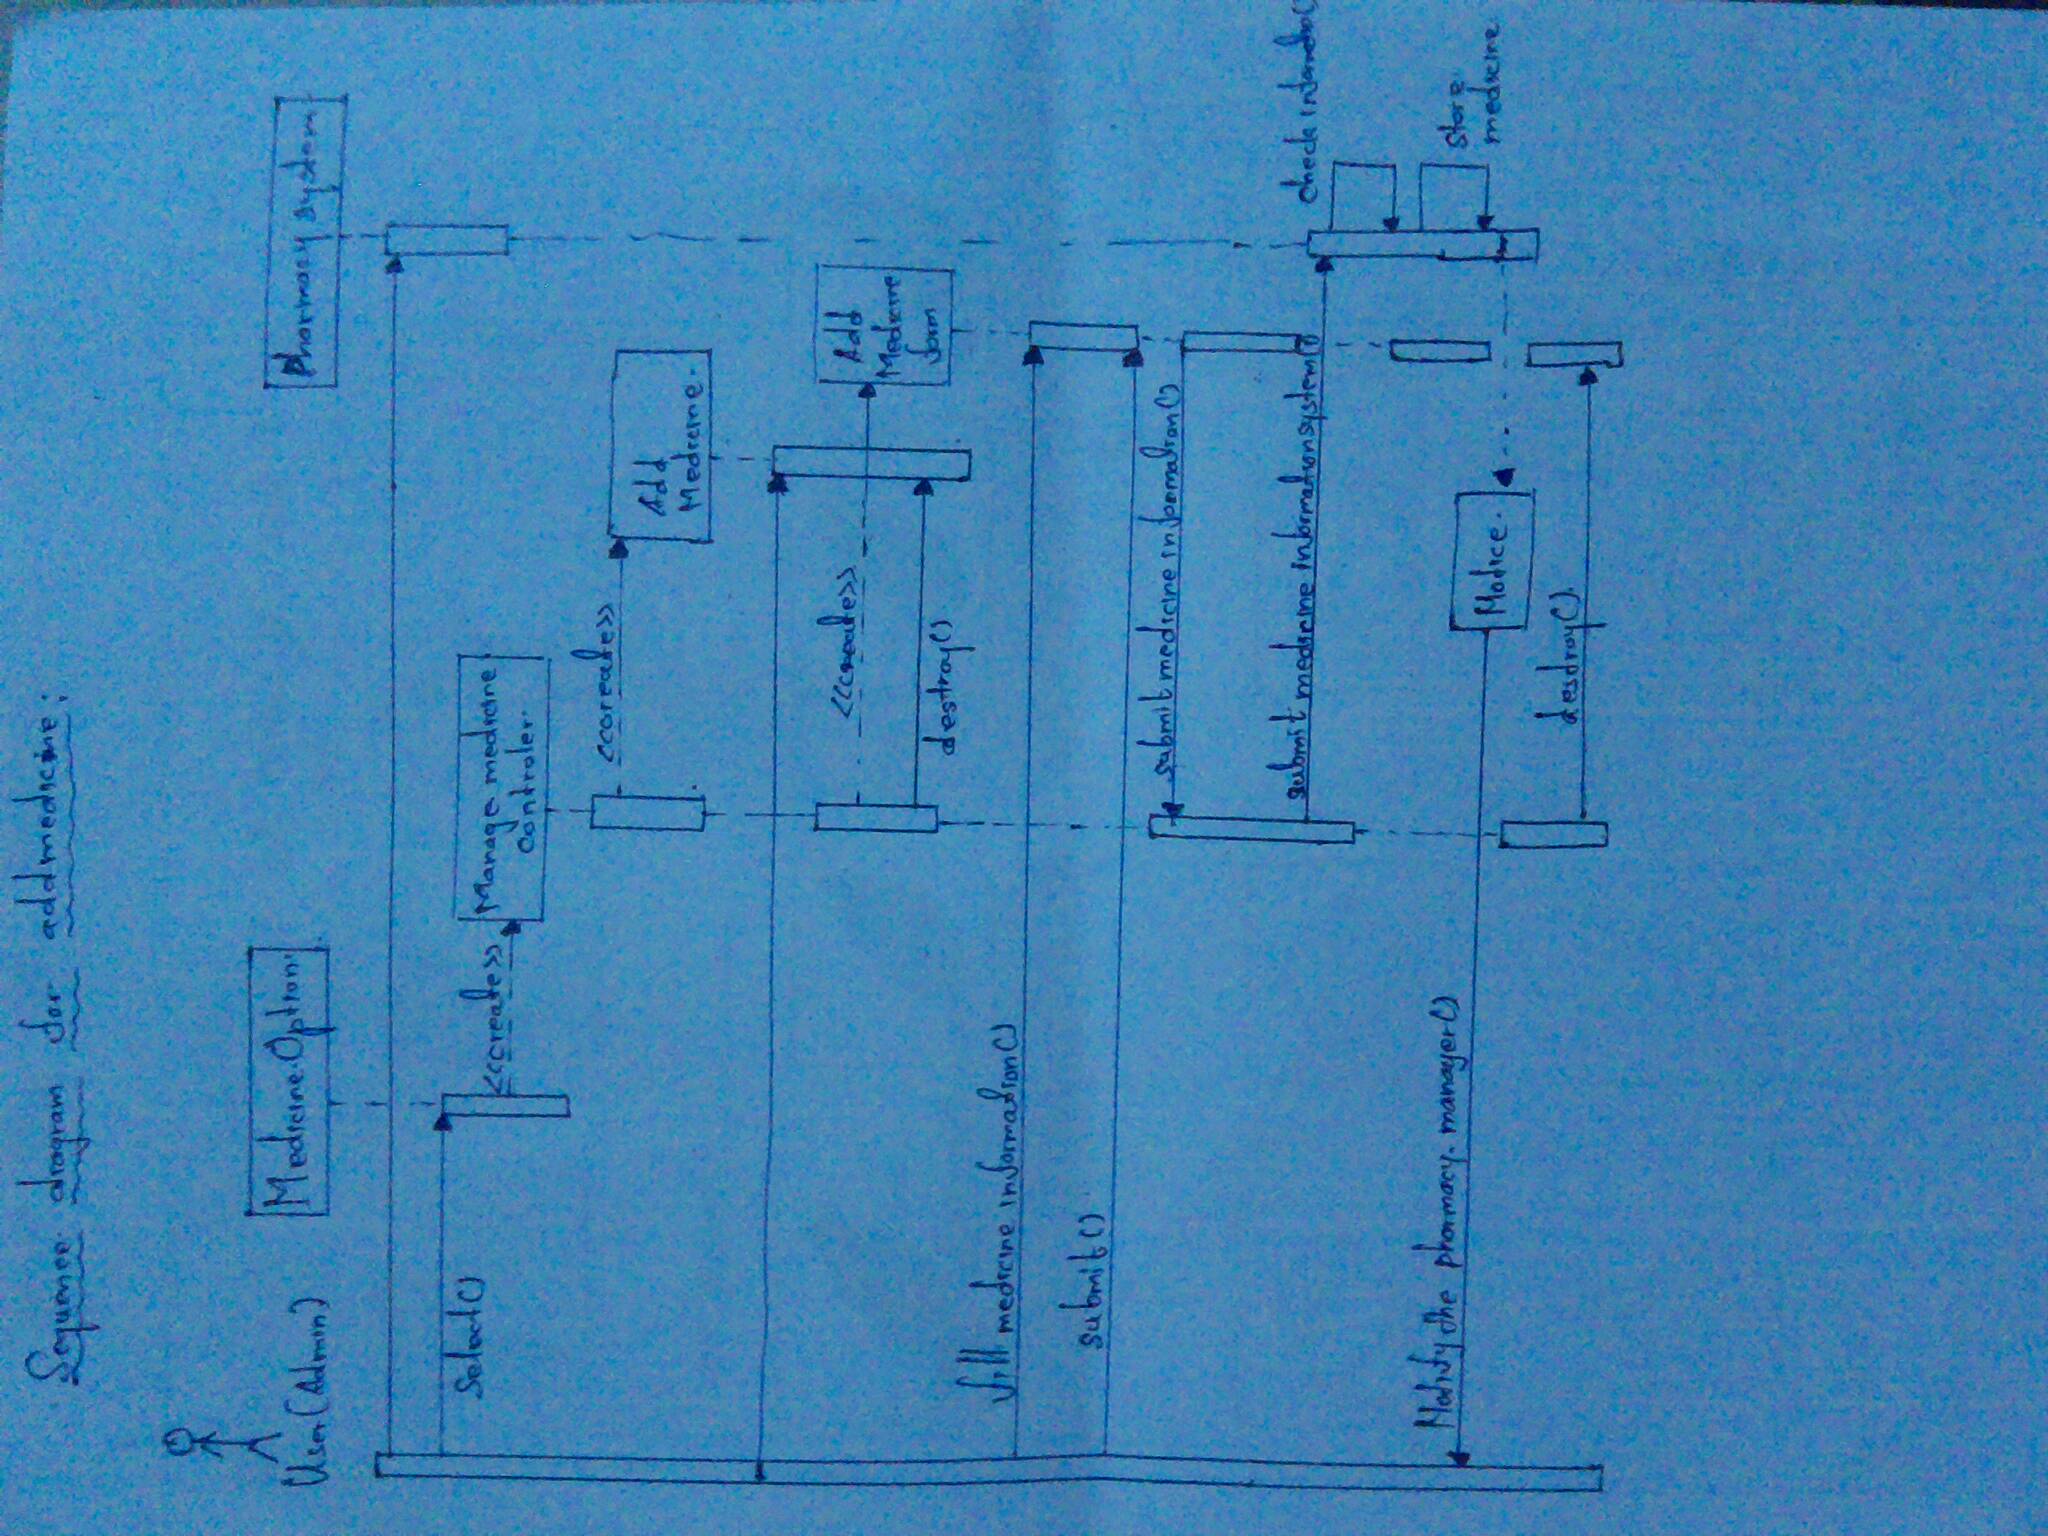 Sequence diagram for addmedicine:
User(Admin)
Medicine.Option.
Pharmacy system.
Select()
<<create>>
Manage medicine
controler.
<<create>>
Add
Medicine.
<<create>>
Add
Medicine
form
destroy()
fill medicine information()
submit()
submit medicine information()
submit medicine informationsystem()
check
Notify the pharmacy. manager()
Notice.
store
medicine
destroy().